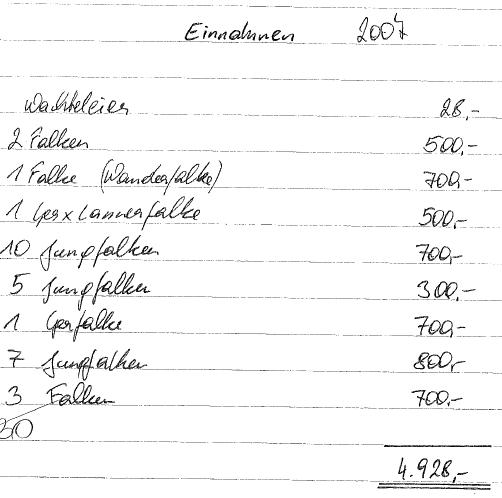 Einnahmen 2007
Wachteleier 28,-
2 Falken 500,-
1 Falke (Wanderfalke) 700,-
1 Ger x Lannerfalke 500,-
10 Jungfalken 700,-
5 Jungfalken 300,-
1 Gerfalke 700,-
7 Jungfalken 800,-
3 Falken 700,-
30
4.928,-